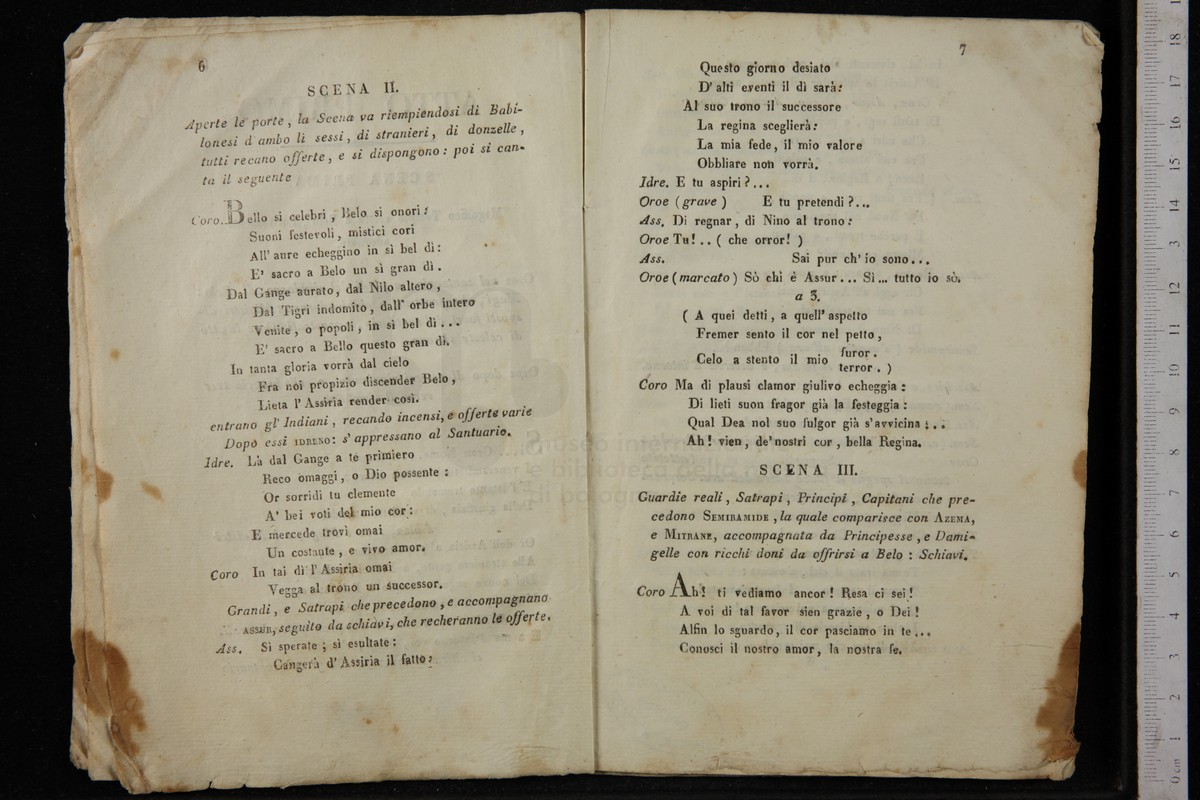 6
SCENA II.
Aperte le porte, la Scena va riempiendosi di Babi-
lonesi d'ambo li sessi, di stranieri, di donzelle,
tutti recano offerte, e si dispongono: poi si can-
ta il seguente
Coro. Bello si celebri, Belo si onori:
Suoni festevoli, mistici cori
All' aure echeggino in sì bel dì:
E' sacro a Belo un sì gran dì.
Dal Gange aurato, dal Nilo altero,
Dal Tigri indomito, dall' orbe intero
Venite, o popoli, in sì bel dì...
E' sacro a Bello questo gran dì.
In tanta gloria vorrà dal cielo
Fra noi propizio discender Belo,
Lieta l'Assiria render così.
entrano gl' Indiani, recando incensi, e offerte varie
Dopò essi IDRENO: s' appressano al Santuario.
Idre. Là dal Gange a te primiero
Reco omaggi, o Dio possente:
Or sorridi tu clemente
A' bei voti del mio cor:
E mercede trovi omai
Un costante, e vivo amor.
Coro In tai dì l'Assiria omai
Vegga al trono un successor.
Grandi, e Satrapi che precedono, e accompagnano
ASSUR, seguito da schiavi, che recheranno le offerte.
Ass. Sì sperate; sì esultate:
Cangerà d'Assiria il fatto:
7
Questo giorno desiato
D' alti eventi il dì sarà:
Al suo trono il successore
La regina sceglierà:
La mia fede, il mio valore
Obbliare non vorrà.
Idre. E tu aspiri?...
Oroe (grave) E tu pretendi?...
Ass. Di regnar, di Nino al trono:
Oroe Tu!.. ( che orror! )
Ass. Sai pur ch' io sono...
Oroe (marcato) Sò chi è Assur... Sì... tutto io sò.
a 3.
( A quei detti, a quell' aspetto
Fremer sento il cor nel petto,
Celo a stento il mio furor.
terror. )
Coro Ma di plausi clamor giulivo echeggia:
Di lieti suon fragor già la festeggia:
Qual Dea nol suo fulgor già s'avvicina;..
Ah! vien, de' nostri cor, bella Regina.
SCENA III.
Guardie reali, Satrapi, Principi, Capitani che pre-
cedono SEMIRAMIDE, la quale comparisce con AZEMA,
e MITRANE, accompagnata da Principesse, e Dami-
gelle con ricchi doni da offrirsi a Belo: Schiavi.
Coro Ah! ti vediamo ancor! Resa ci sei!
A voi di tal favor sien grazie, o Dei!
Alfin lo sguardo, il cor pasciamo in te...
Conosci il nostro amor, la nostra fe.